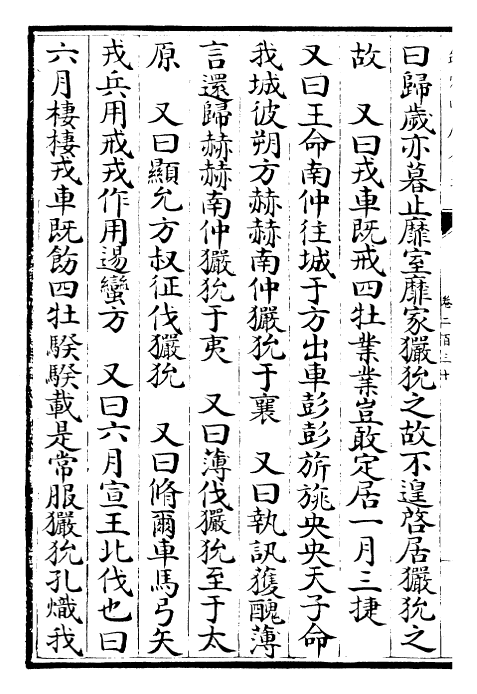 曰歸歲亦暮止靡室靡家玁狁之故不遑啓居玁狁之
故　又曰戎車既戒四牡業業豈敢定居一月三捷
又曰王命南仲往城于方出車彭彭旂旐央央天子命
我城彼朔方赫赫南仲玁狁于襄　又曰執訊獲醜薄
言還歸赫赫南仲玁狁于夷　又曰薄伐玁狁至于太
原　又曰顯允方叔征伐玁狁　又曰脩爾車馬弓矢
戎兵用戒戎作用逷蠻方　又曰六月宣王北伐也曰
六月棲棲戎車既飭四牡騤騤載是常服玁狁孔熾我
卷二百三十